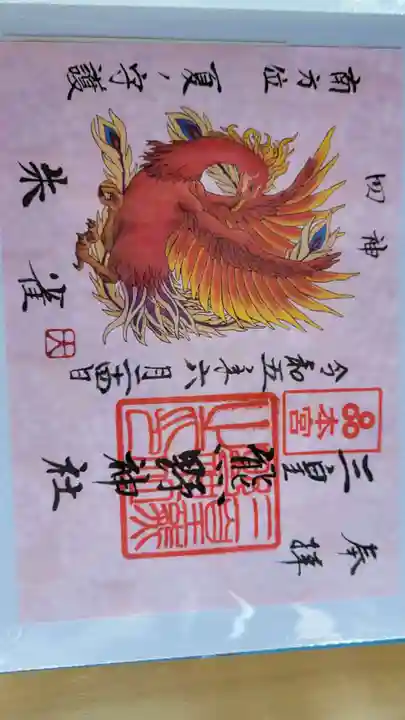 奉拝
三皇熊野神社
本宮
令和五年六月二十四日
四神
南方位 夏ノ守護
朱雀